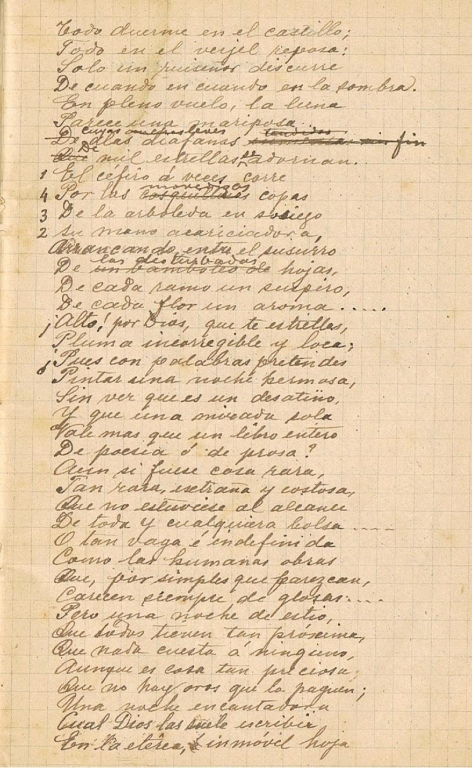 Todo duerme en el castillo;
Todo en el verjel reposa:
Solo un ruiseñor discurre
De cuando en cuando en la sombra.
En pleno vuelo, la luna
Parece una mariposa
cuyas leves tendidas
De alas diáfanas sin fin
De
Que mil estrellas se adornan.
1 El céfiro á veces corre
movedizas
4 Por las copas
3 De la arboleda en sosiego
2 Su mano acariciadora,
Arrancando, entre el susurro
las disturbadas
De un bamboleo de hojas,
De cada ramo un suspiro,
De cada flor un aroma.....
¡Alto! por Dios, que te estrellas,
Pluma incorregible y loca;
¿Pues con palabras pretendes
Pintar una noche hermosa,
Sin ver que es un desatino,
Y que una mirada sola
Vale mas que un libro entero
De poesía ó de prosa?
Aun si fuese cosa rara,
Tan rara, extraña y costosa,
Que no estuviese al alcance
De toda y cualquiera bolsa.....
O tan vaga é indefinida
Como las humanas obras
Que, por simples que parezcan,
Carecen siempre de glosas....
Pero una noche de estio,
Que todos tienen tan próxima,
Que nada cuesta á ninguno,
Aunque es cosa tan preciosa
Que no hay oros que la paguen;
Una noche encantadora
Cual Dios las suele escribir
En la etérea, é inmóvil hoja